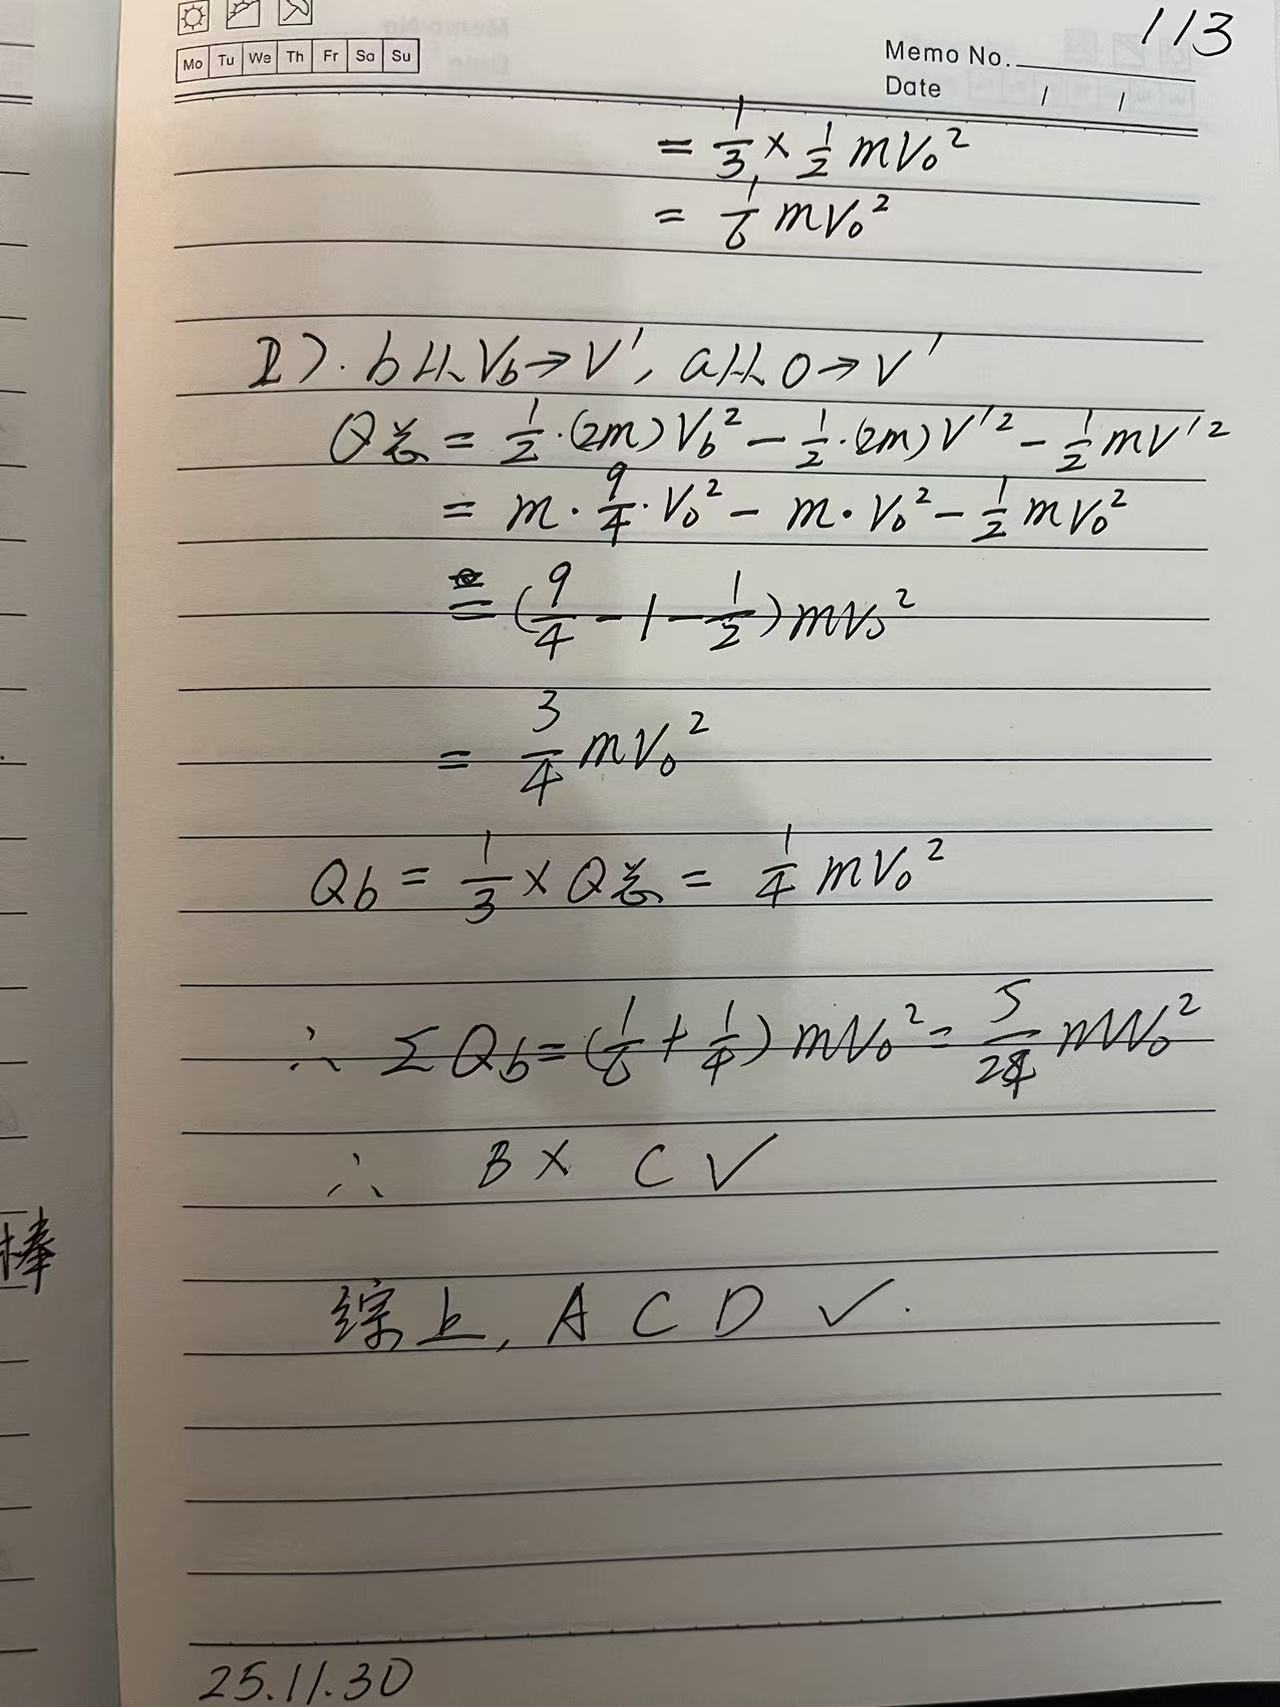 113
Mo Tu We Th Fr Sa Su
Memo No.
Date / /
= 1/3 × 1/2 mV₀²
= 1/6 mV₀²
2). b从V_b→V', a从0→V'
Q总 = 1/2·(2m)V_b² - 1/2·(2m)V'² - 1/2 mV'²
= m·9/4·V₀² - m·V₀² - 1/2 mV₀²
= (9/4 - 1 - 1/2)mV₀²
= 3/4 mV₀²
Q_b = 1/3 × Q总 = 1/4 mV₀²
∴ ΣQ_b = (1/6 + 1/4) mV₀² = 5/24 mV₀²
∴ B× C✓
综上, A C D ✓.
棒
25.11.30